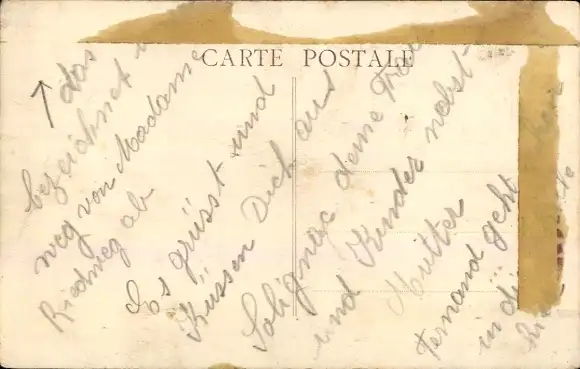 CARTE POSTALE
das
bezeichnet
weg von Madame
Riedweg ab
Es grüsst und
Küssen Dich aus
Solignac deine Frau
und Kinder nebst
Mutter
Fernand geht
in di